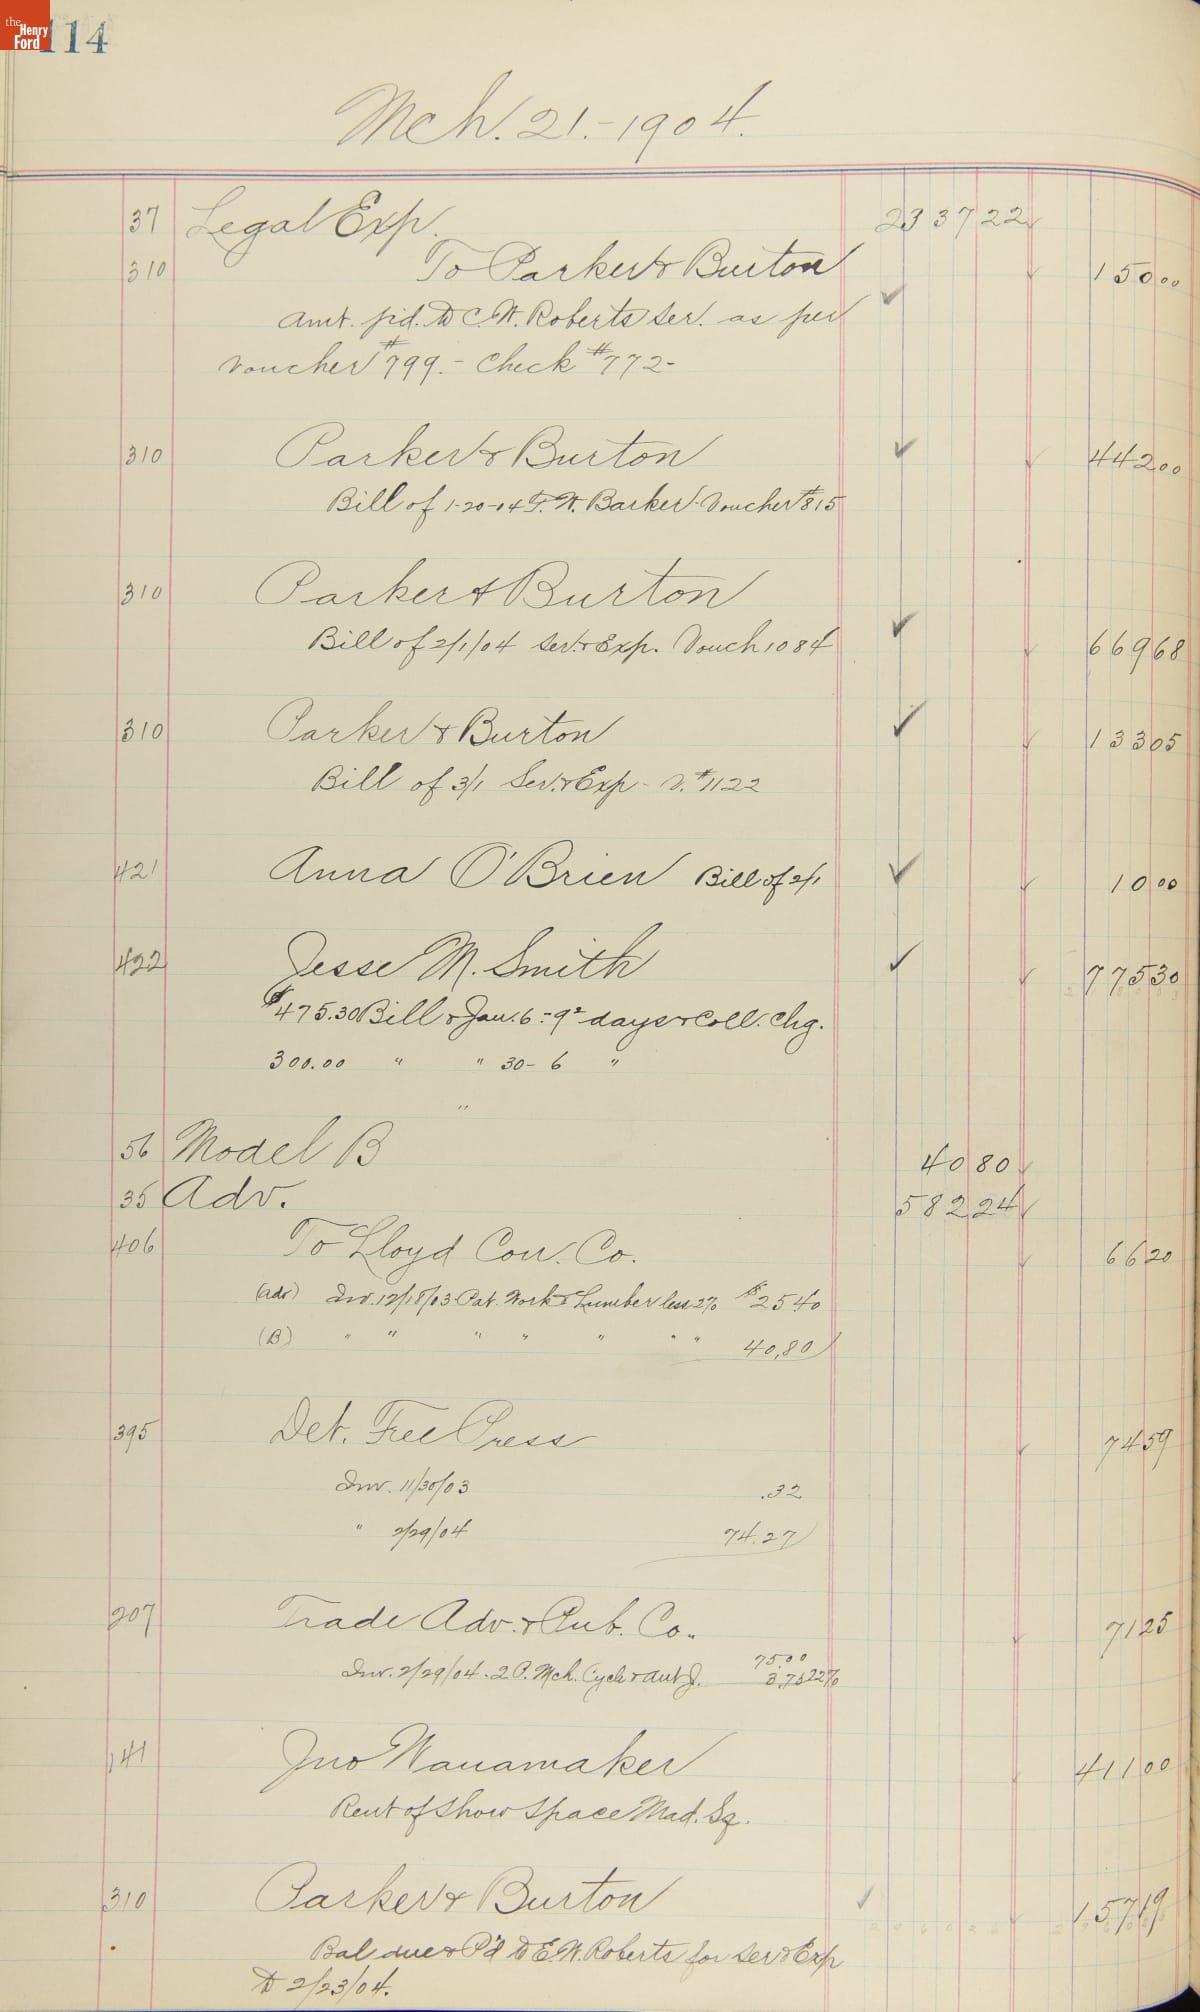 the Henry Ford
114
Mch. 21.-1904.
37 Legal Exp. 2337 22
310 To Parker & Burton 150 00
Amt. p'd. to C. W. Roberts Ser. as per
Voucher #799.- Check #772-
310 Parker & Burton 442 00
Bill of 1-20-04 F. W. Barker Voucher #815
310 Parker & Burton
Bill of 2/1/04 Serv. & Exp. Vouch 1084 669 68
310 Parker & Burton 133 05
Bill of 3/1 Serv. & Exp - V. #1122
421 Anna O'Brien Bill of 2/1 10 00
422 Jesse M. Smith 775 30
$475.30 Bill Jan. 6 - 9² days & Coll. Chg.
300.00 " " 30 - 6 "
"
56 Model B 40 80
35 Adv. 582 24
406 To Lloyd Con. Co. 66 20
(adv) Inv. 12/18/03 Pat. Work & Lumber less 2% $25 40
(B) " " " " " " " 40,80
395 Det. Free Press 74 59
Inv. 11/30/03 .32
" 2/29/04 74.27
207 Trade Adv. & Pub. Co. 71 25
Inv. 2/29/04 - 2 P. Mch. Cycle & Aut J. 75.00
3.75
141 Jno Wanamaker 411 00
Rent of Show Space Mad. Sq.
310 Parker & Burton 157 19
Bal due & P'd to E. W. Roberts for Ser & Exp
to 2/23/04.